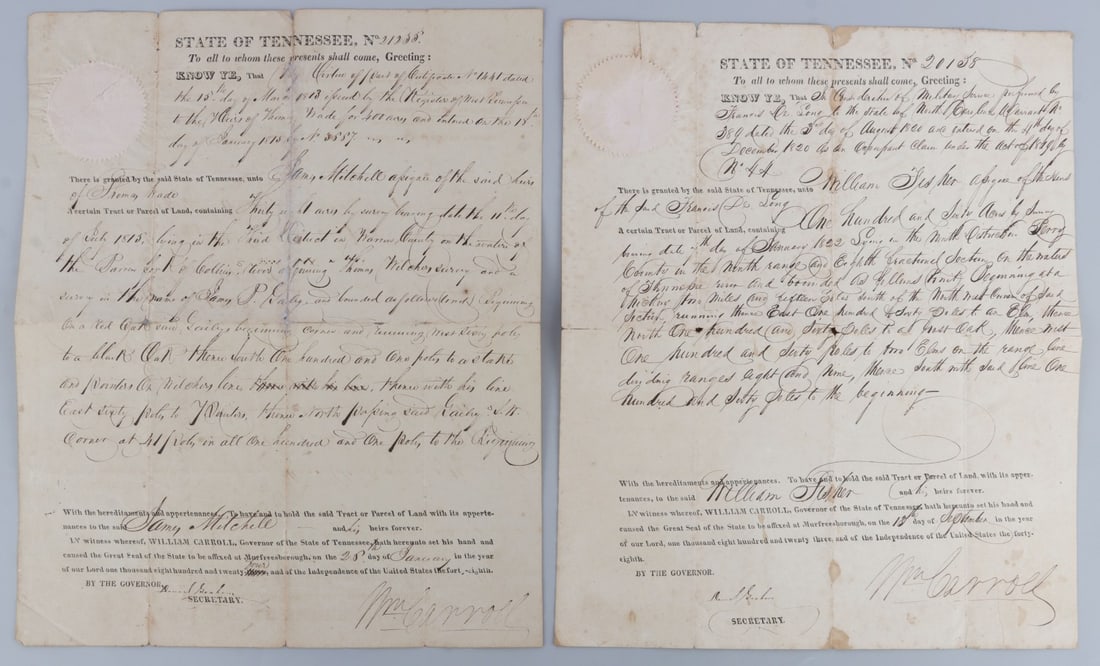 STATE OF TENNESSEE, No 21235
To all to whom these presents shall come, Greeting:
KNOW YE, That By Virtue of part of Certificate No 1441 dated
the 15th day of March 1813 issued by the Register of West Tennessee
to the Heirs of Thomas Wade for 400 acres and entered on the 18th
day of January 1815 by No
There is granted by the said State of Tennessee, unto James Mitchell assignee of the said heirs
of Thomas Wade
A certain Tract or Parcel of Land, containing Thirty eight acres by survey bearing date the 11th day
of July 1815, lying in the Third District in Warren County on the waters of
the Barren fork of Collins River adjoining Thomas Wilchers survey and a
survey in the name of James P. and bounded as follows (towit) Beginning
On a Red Oak said beginning corner and running west Sixty poles
to a black Oak thence South One hundred and one poles to a Stake
and pointers in Wilchers line thence with his line
East Sixty poles to Pointers thence North passing said S.W.
Corner at 41 poles in all One hundred and One poles to the Beginning
With the hereditaments and appertenances. To have and to hold the said Tract or Parcel of Land with its apperte-
nances to the said James Mitchell and his heirs forever.
IN witness whereof, WILLIAM CARROLL, Governor of the State of Tennessee, hath hereunto set his hand and
caused the Great Seal of the State to be affixed at Murfreesborough, on the 28th day of January in the year
of our Lord one thousand eight hundred and twenty four, and of the Independence of the United States the forty-eighth.
BY THE GOVERNOR.
Wm Carroll
SECRETARY.
STATE OF TENNESSEE, No 20158
To all to whom these presents shall come, Greeting:
KNOW YE, That In Consideration of Military Service performed by
Francis De Long to the State of North Carolina Warrant No
389 dated the 3rd day of August 1820 and entered on the 4th day of
December 1820 as an Occupant Claim under the Act of 1819 by
No 44
There is granted by the said State of Tennessee, unto William Fisher assignee of the heirs
of the said Francis De Long
A certain Tract or Parcel of Land, containing One hundred and Sixty Acres by Survey
bearing date day of January 1822 Lying in the Ninth District in Perry
County in the Ninth range and Eighth fractional Section on the waters
of river and bounded as follows towit, Beginning at a
Hickory two Miles and fifteen Poles South of the North west Corner of Said
Section, running thence East One hundred & Sixty Poles to an Elm, thence
North One hundred and Sixty Poles to a Post Oak, thence west
One hundred and Sixty poles to two Elms on the range line
dividing ranges eight and nine, thence South with said line One
hundred and Sixty Poles to the beginning
With the hereditaments and appertenances. To have and to hold the said Tract or Parcel of Land, with its apper-
tenances, to the said William Fisher and his heirs forever.
IN witness whereof, WILLIAM CARROLL, Governor of the State of Tennessee, hath hereunto set his hand and
caused the Great Seal of the State to be affixed at Murfreesborough, on the 12th day of September in the year
of our Lord, one thousand eight hundred and twenty three, and of the Independence of the United States the forty-
eighth.
BY THE GOVERNOR.
Wm Carroll
SECRETARY.